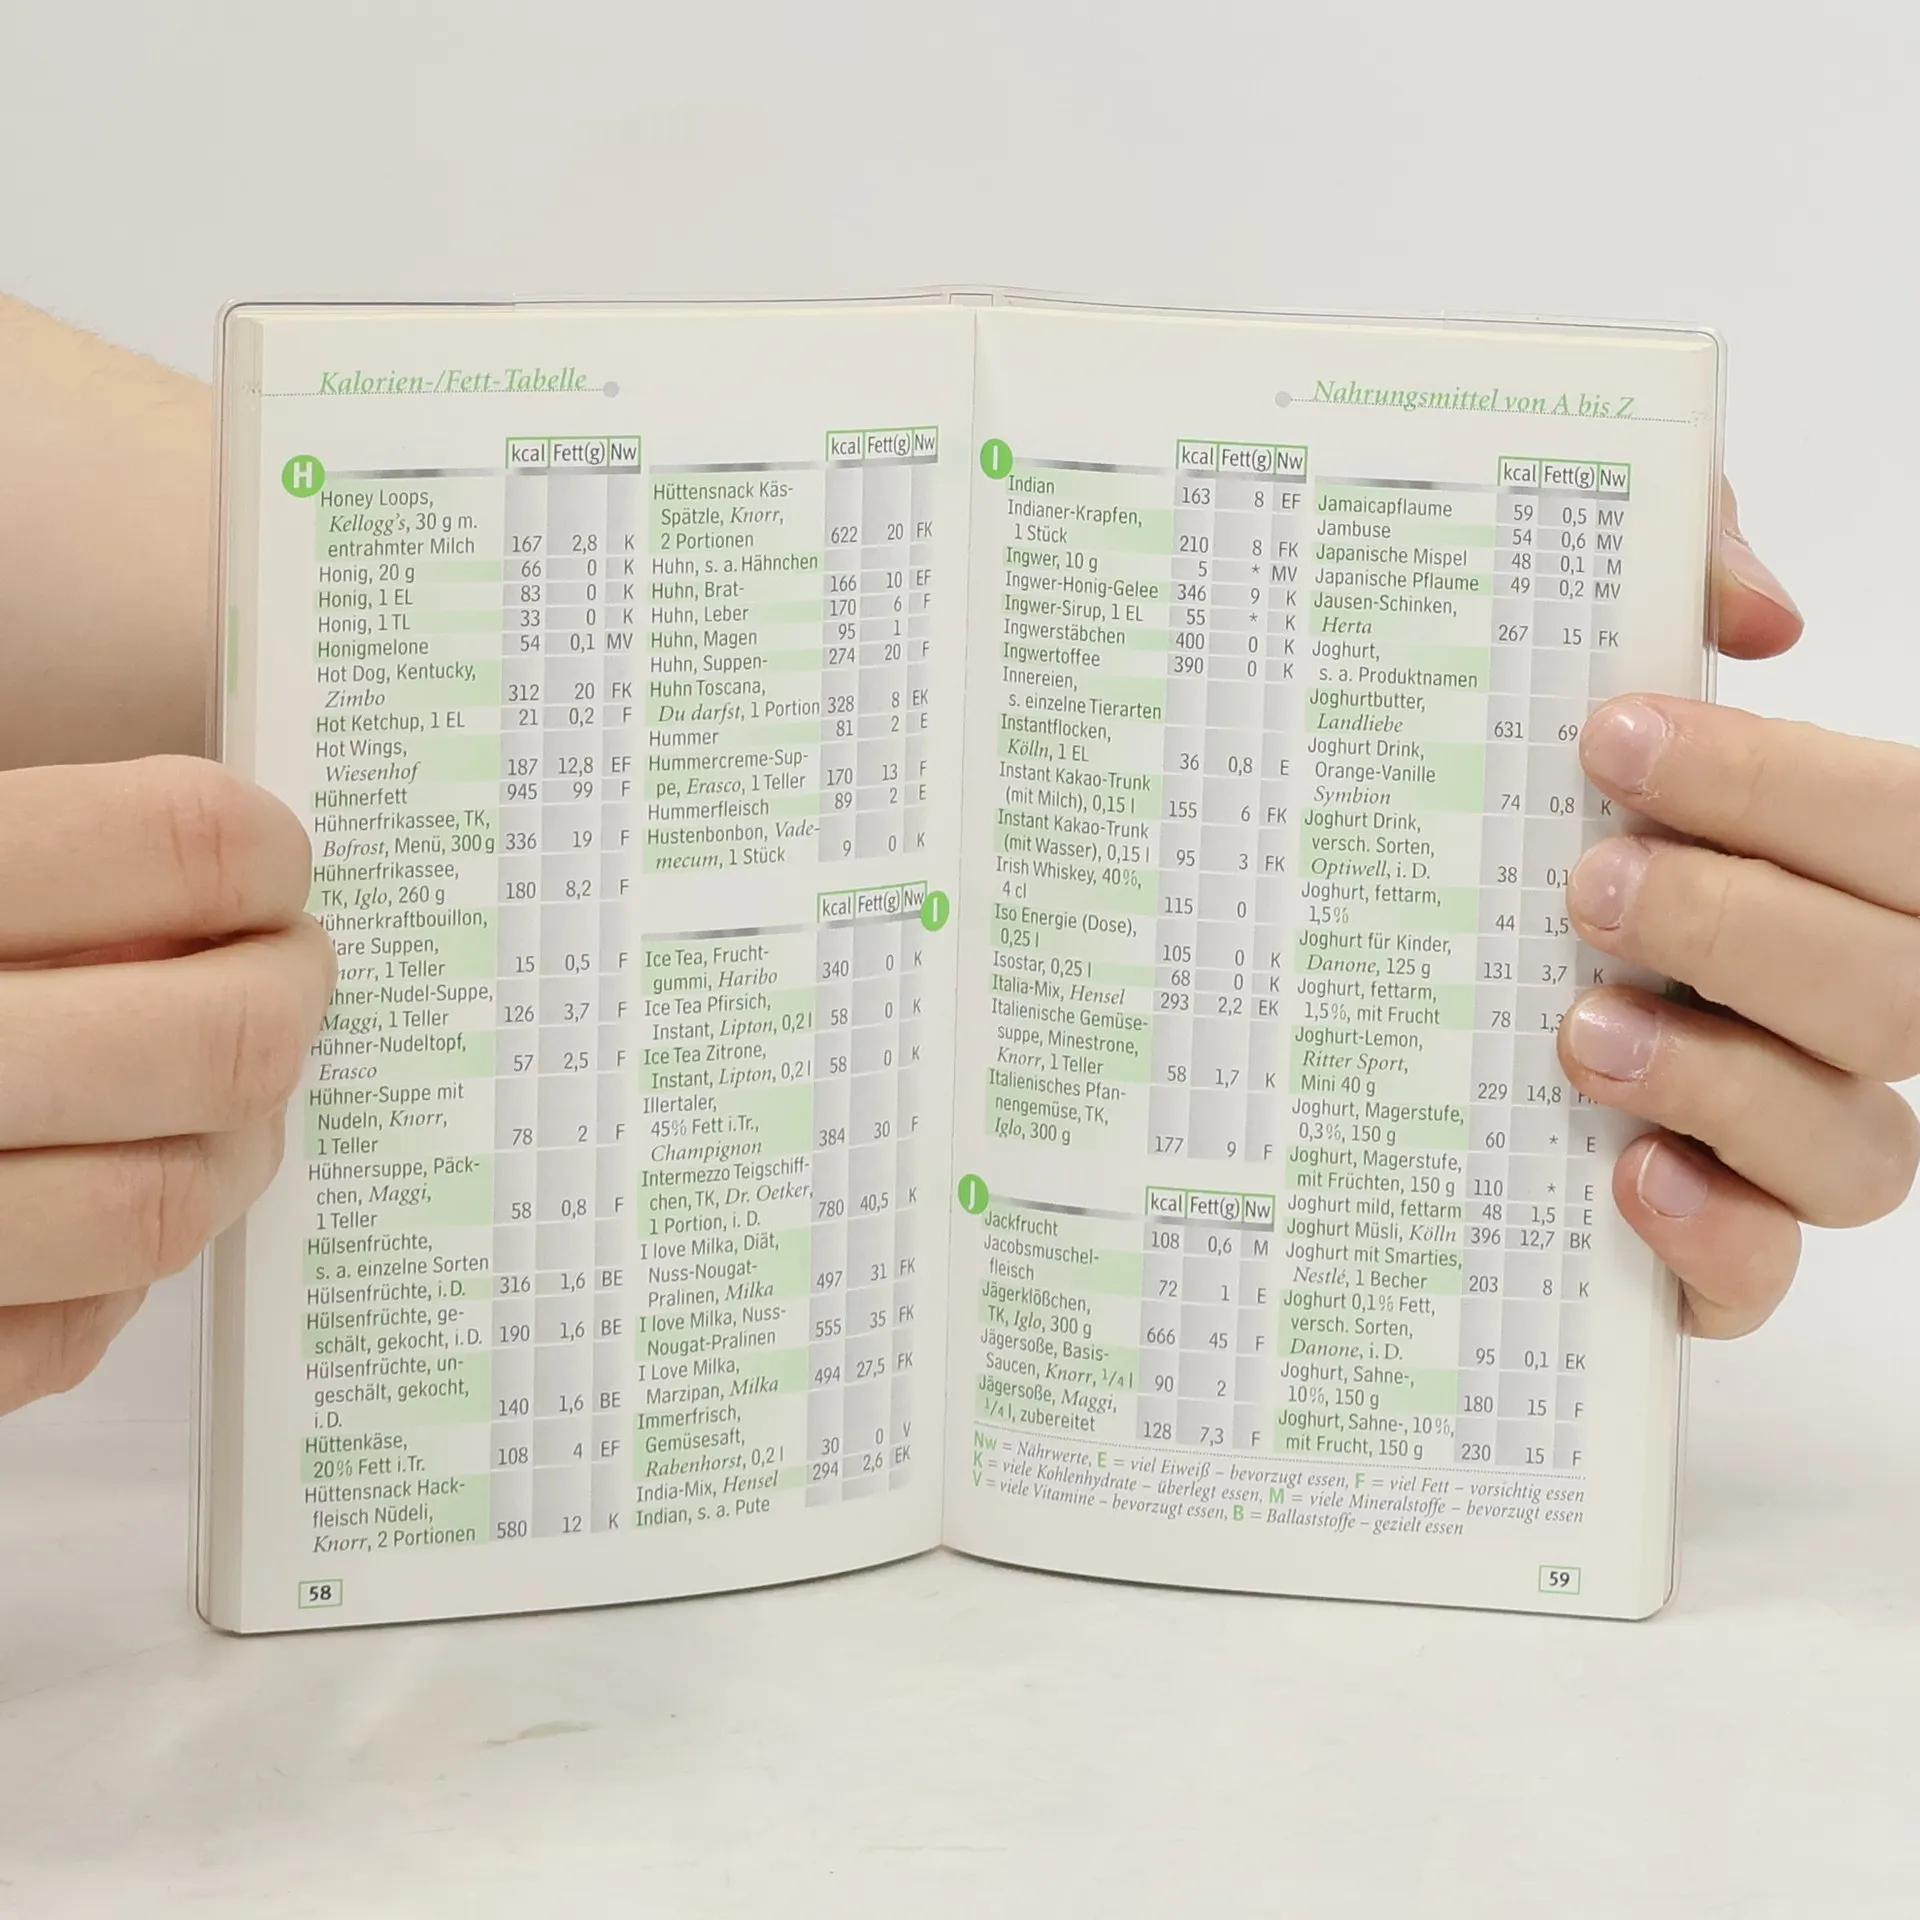 Kalorien-/Fett-Tabelle
H
kcal Fett(g) Nw
Honey Loops,
Kellogg's, 30 g m.
entrahmter Milch 167 2,8 K
Honig, 20 g 66 0 K
Honig, 1 EL 83 0 K
Honig, 1 TL 33 0 K
Honigmelone 54 0,1 MV
Hot Dog, Kentucky,
Zimbo 312 20 FK
Hot Ketchup, 1 EL 21 0,2 F
Hot Wings,
Wiesenhof 187 12,8 EF
Hühnerfett 945 99 F
Hühnerfrikassee, TK,
Bofrost, Menü, 300 g 336 19 F
Hühnerfrikassee,
TK, Iglo, 260 g 180 8,2 F
ühnerkraftbouillon,
lare Suppen,
norr, 1 Teller 15 0,5 F
hner-Nudel-Suppe,
Maggi, 1 Teller 126 3,7 F
Hühner-Nudeltopf,
Erasco 57 2,5 F
Hühner-Suppe mit
Nudeln, Knorr,
1 Teller 78 2 F
Hühnersuppe, Päck-
chen, Maggi,
1 Teller 58 0,8 F
Hülsenfrüchte,
s. a. einzelne Sorten
Hülsenfrüchte, i. D. 316 1,6 BE
Hülsenfrüchte, ge-
schält, gekocht, i. D. 190 1,6 BE
Hülsenfrüchte, un-
geschält, gekocht,
i. D. 140 1,6 BE
Hüttenkäse,
20% Fett i.Tr. 108 4 EF
Hüttensnack Hack-
fleisch Nüdeli,
Knorr, 2 Portionen 580 12 K
kcal Fett(g) Nw
Hüttensnack Käs-
Spätzle, Knorr,
2 Portionen 622 20 FK
Huhn, s. a. Hähnchen
Huhn, Brat- 166 10 EF
Huhn, Leber 170 6 F
Huhn, Magen 95 1
Huhn, Suppen- 274 20 F
Huhn Toscana,
Du darfst, 1 Portion 328 8 EK
Hummer 81 2 E
Hummercreme-Sup-
pe, Erasco, 1 Teller 170 13 F
Hummerfleisch 89 2 E
Hustenbonbon, Vade-
mecum, 1 Stück 9 0 K
kcal Fett(g) Nw I
Ice Tea, Frucht-
gummi, Haribo 340 0 K
Ice Tea Pfirsich,
Instant, Lipton, 0,2 l 58 0 K
Ice Tea Zitrone,
Instant, Lipton, 0,2 l 58 0 K
Illertaler,
45% Fett i.Tr.,
Champignon 384 30 F
Intermezzo Teigschiff-
chen, TK, Dr. Oetker,
1 Portion, i. D. 780 40,5 K
I love Milka, Diät,
Nuss-Nougat-
Pralinen, Milka 497 31 FK
I love Milka, Nuss-
Nougat-Pralinen 555 35 FK
I Love Milka,
Marzipan, Milka 494 27,5 FK
Immerfrisch,
Gemüsesaft,
Rabenhorst, 0,2 l 30 0 V
India-Mix, Hensel 294 2,6 EK
Indian, s. a. Pute
58
Nahrungsmittel von A bis Z
I
kcal Fett(g) Nw
Indian 163 8 EF
Indianer-Krapfen,
1 Stück 210 8 FK
Ingwer, 10 g 5 * MV
Ingwer-Honig-Gelee 346 9 K
Ingwer-Sirup, 1 EL 55 * K
Ingwerstäbchen 400 0 K
Ingwertoffee 390 0 K
Innereien,
s. einzelne Tierarten
Instantflocken,
Kölln, 1 EL 36 0,8 E
Instant Kakao-Trunk
(mit Milch), 0,15 l 155 6 FK
Instant Kakao-Trunk
(mit Wasser), 0,15 l 95 3 FK
Irish Whiskey, 40%,
4 cl 115 0
Iso Energie (Dose),
0,25 l 105 0 K
Isostar, 0,25 l 68 0 K
Italia-Mix, Hensel 293 2,2 EK
Italienische Gemüse-
suppe, Minestrone,
Knorr, 1 Teller 58 1,7 K
Italienisches Pfan-
nengemüse, TK,
Iglo, 300 g 177 9 F
J
kcal Fett(g) Nw
Jackfrucht 108 0,6 M
Jacobsmuschel-
fleisch 72 1 E
Jägerklößchen,
TK, Iglo, 300 g 666 45 F
Jägersoße, Basis-
Saucen, Knorr, 1/4 l 90 2
Jägersoße, Maggi,
1/4 l, zubereitet 128 7,3 F
kcal Fett(g) Nw
Jamaicapflaume 59 0,5 MV
Jambuse 54 0,6 MV
Japanische Mispel 48 0,1 M
Japanische Pflaume 49 0,2 MV
Jausen-Schinken,
Herta 267 15 FK
Joghurt,
s. a. Produktnamen
Joghurtbutter,
Landliebe 631 69
Joghurt Drink,
Orange-Vanille
Symbion 74 0,8 K
Joghurt Drink,
versch. Sorten,
Optiwell, i. D. 38 0,1
Joghurt, fettarm,
1,5% 44 1,5
Joghurt für Kinder,
Danone, 125 g 131 3,7 K
Joghurt, fettarm,
1,5%, mit Frucht 78 1,3
Joghurt-Lemon,
Ritter Sport,
Mini 40 g 229 14,8
Joghurt, Magerstufe,
0,3%, 150 g 60 * E
Joghurt, Magerstufe,
mit Früchten, 150 g 110 * E
Joghurt mild, fettarm 48 1,5 E
Joghurt Müsli, Kölln 396 12,7 BK
Joghurt mit Smarties,
Nestlé, 1 Becher 203 8 K
Joghurt 0,1% Fett,
versch. Sorten,
Danone, i. D. 95 0,1 EK
Joghurt, Sahne-,
10%, 150 g 180 15 F
Joghurt, Sahne-, 10%,
mit Frucht, 150 g 230 15 F
Nw = Nährwerte, E = viel Eiweiß – bevorzugt essen, F = viel Fett – vorsichtig essen
K = viele Kohlenhydrate – überlegt essen, M = viele Mineralstoffe – bevorzugt essen
V = viele Vitamine – bevorzugt essen, B = Ballaststoffe – gezielt essen
59